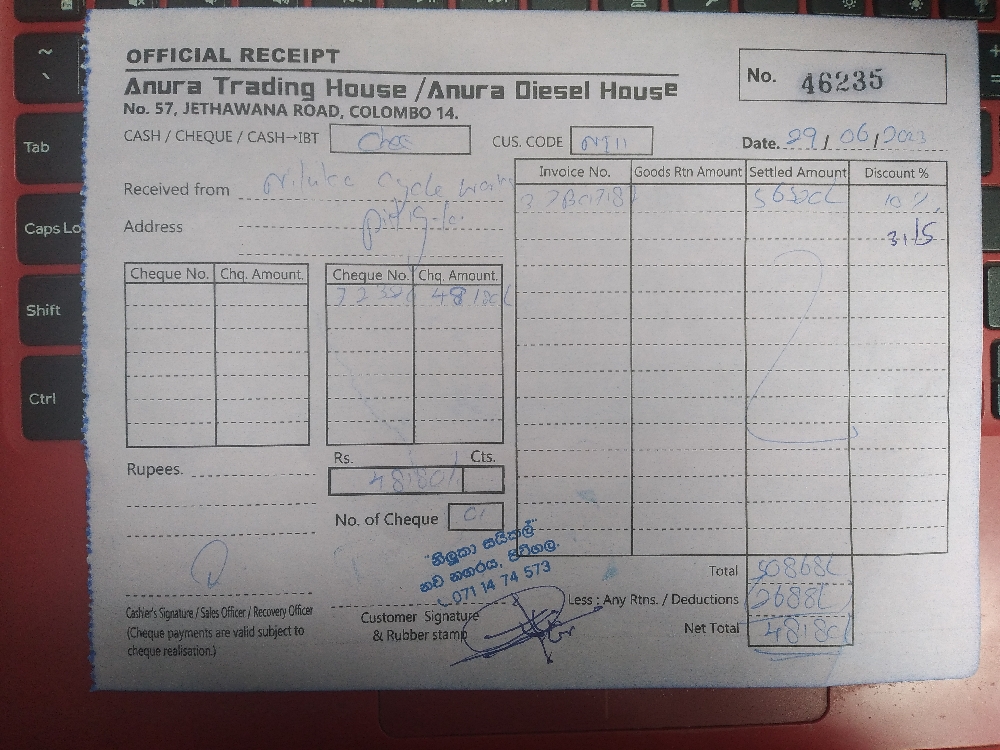 OFFICIAL RECEIPT
Anura Trading House / Anura Diesel House
No. 57, JETHAWANA ROAD, COLOMBO 14.
No. 46235
CASH / CHEQUE / CASH→IBT
CUS. CODE
Date. 29 / 06 / 2023
Received from
Address
Invoice No. Goods Rtn Amount Settled Amount Discount %
10 %
Cheque No. Chq. Amount.
Cheque No. Chq. Amount.
Rupees.
Rs. Cts.
48180/
No. of Cheque 01
"නිලුකා සයිකල්"
නව නගරය, පිටිගල.
071 14 74 573
Total 50868/
Less : Any Rtns. / Deductions 2688/
Net Total 48180/
Cashier's Signature / Sales Officer / Recovery Officer
(Cheque payments are valid subject to
cheque realisation.)
Customer Signature
& Rubber stamp